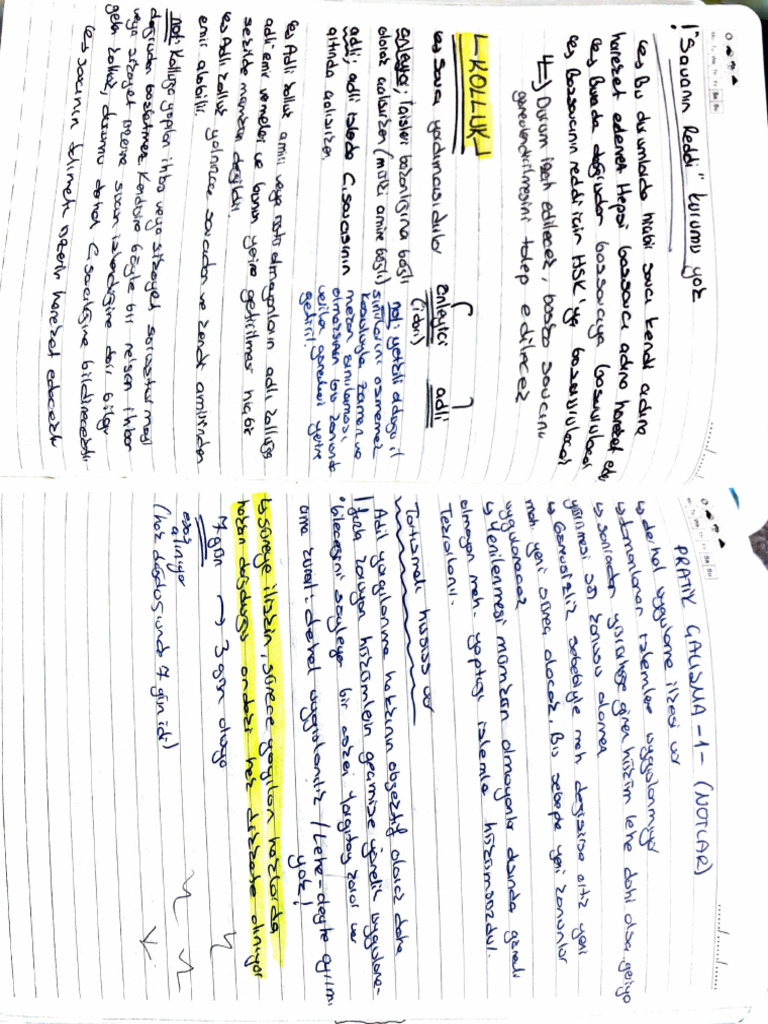 ! "Savcının Reddi" kurumu yok
↳ Bu durumlarda hiçbir savcı kendi adına
hareket edemez Hepsi başsavcı adına hareket ed
↳ Burada doğrudan başsavcıya başvurulacak
↳ Başsavcının reddi için HSK'ya başvurulacak
4=) Durum izah edilecek, başka savcının
görevlendirilmesini talep edilecek
- KOLLUK -
↳ Savcı yardımcısıdırlar
önleyici
(idari)
adli
önleyici; İçişleri bakanlığına bağlı
olarak çalışırken (mülki amire bağlı)
adli; adli işlerde C.savcısının
altında çalışırken
not: yetkili olduğu il
sınırlarını aşmamak
koşuluyla zaman ve
mekan sınırlaması
olmaksızın bu kanunda
verilen görevleri yerine
getirir.
↳ Adli kolluk amiri veya üstü olmayanların adli kolluğa
adli emir vermeleri ve bunun yerine getirilmesi hiçbir
şekilde mümkün değildir.
↳ Adli kolluk yalnızca savcıdan ve kendi amirinden
emir alabilir.
not: Kolluğa yapılan ihbar veya şikayet soruşturmayı
doğrudan başlatmaz. Kendisine böyle bir
veya şikayet üzerine suçun işlendiğine dair bilgi
gelen kolluk, durumu derhal C.savcılığına bildirecektir
↳ savcının talimatı üzerine hareket edecektir
PRATİK ÇALIŞMA -1- (NOTLAR)
↳ derhal uygulama ilkesi var
↳ tamamlanan işlemlere uygulanmıyor
↳ sonradan yürürlüğe giren hüküm lehe dahi olsa geriye
yürümesi söz konusu olamaz
↳ Görevsizlik sebebiyle mah değişirse artık yeni
mah yeni süreç olacak. Bu sebeple yeni kanunlar
uygulanacak
↳ Yenilenmesi mümkün olmayanlar dışında görevli
olmayan mah. yaptığı işlemler hükümsüzdür.
Tekrarlanır.
Tartışmalı husus var
Adil yargılanma hakkının objektif olarak daha
! fazla koruyan hükümlerin geçmişe yönelik uygulana-
bileceğini söyleyen bir eski Yargıtay kararı var
ama kural: derhal uygulanırlık / Lehe-aleyhe ayrımı
yok!
↳ süreye ilişkin, sürece yayılan haklarda
hakkın doğduğu andaki hak dikkate alınıyor
7 gün → 3 gün olayı
esas
alınıyor
(hak doğduğunda 7 gün idi)